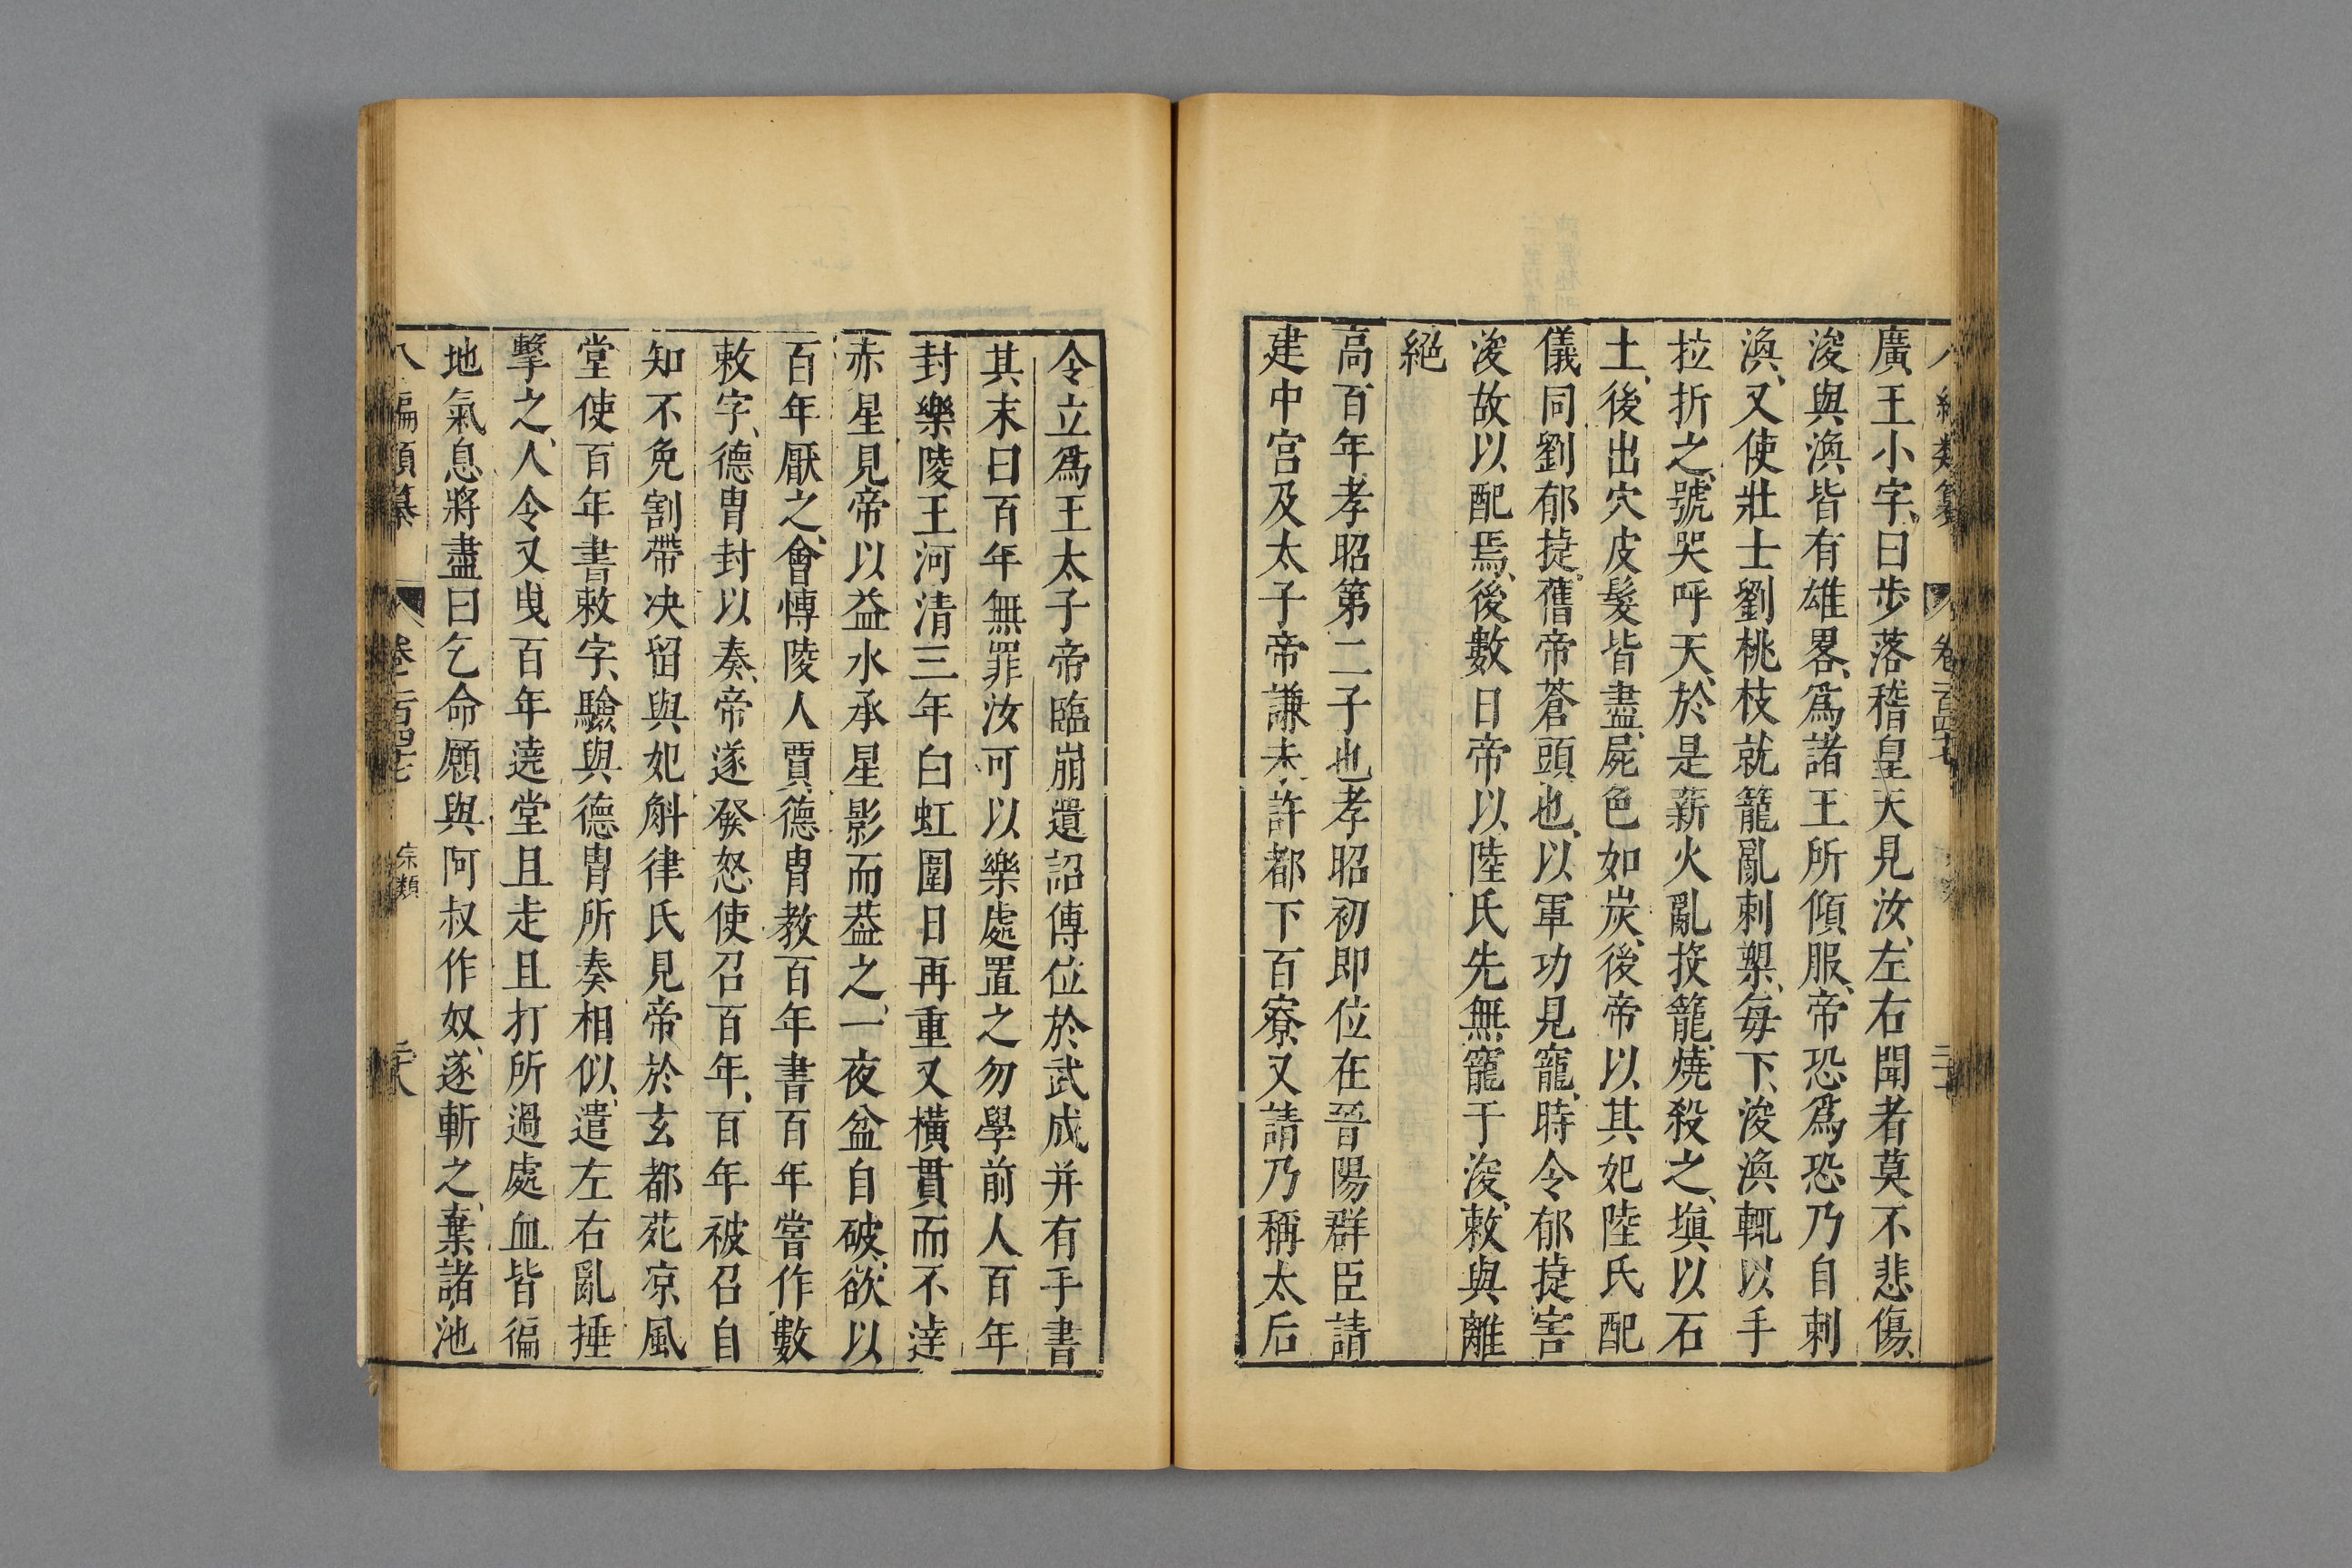 廣王小字、曰步落稽皇天見汝、左右聞者莫不悲傷、
浚與渙皆有雄畧、爲諸王所傾服、帝恐爲恐乃自刺
渙、又使壯士劉桃枝就籠亂刺槊、每下、浚渙輒以手
拉折之、號哭呼天、於是薪火亂投籠、燒殺之、塡以石
土、後出穴皮髮皆盡、屍色如炭、後帝以其妃陸氏配
儀同劉郁捷、舊帝蒼頭也、以軍功見寵、時令郁捷害
浚故以配焉、後數日帝以陸氏先無寵于浚、敕與離
絕
高百年孝昭第二子也孝昭初即位在晉陽群臣請
建中宮及太子帝謙未許都下百寮又請乃稱太后
令立爲王太子帝臨崩遺詔傳位於武成并有手書
其末曰百年無罪汝可以樂處置之勿學前人百年
封樂陵王河清三年白虹圍日再重又橫貫而不達
赤星見帝以益水承星影而葢之、一夜盆自破、欲以
百年厭之、會愽陵人賈德胄教百年書百年嘗作數
敕字、德胄封以奏、帝遂發怒、使召百年、百年被召自
知不免割帶决留與妃斛律氏見帝於玄都苑凉風
堂使百年書敕字、驗與德胄所奏相似、遣左右亂捶
擊之、人令又曳百年遶堂且走且打所過處血皆徧
地氣息將盡曰乞命願與阿叔作奴、遂斬之、棄諸池
八編類纂 卷二百四十七 宗類 二十八